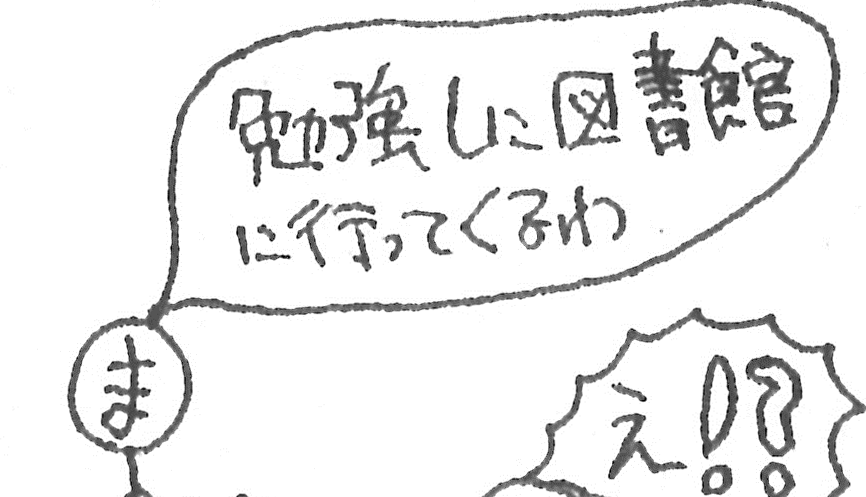 勉強しに図書館
に行ってくるわ
ま
え!?